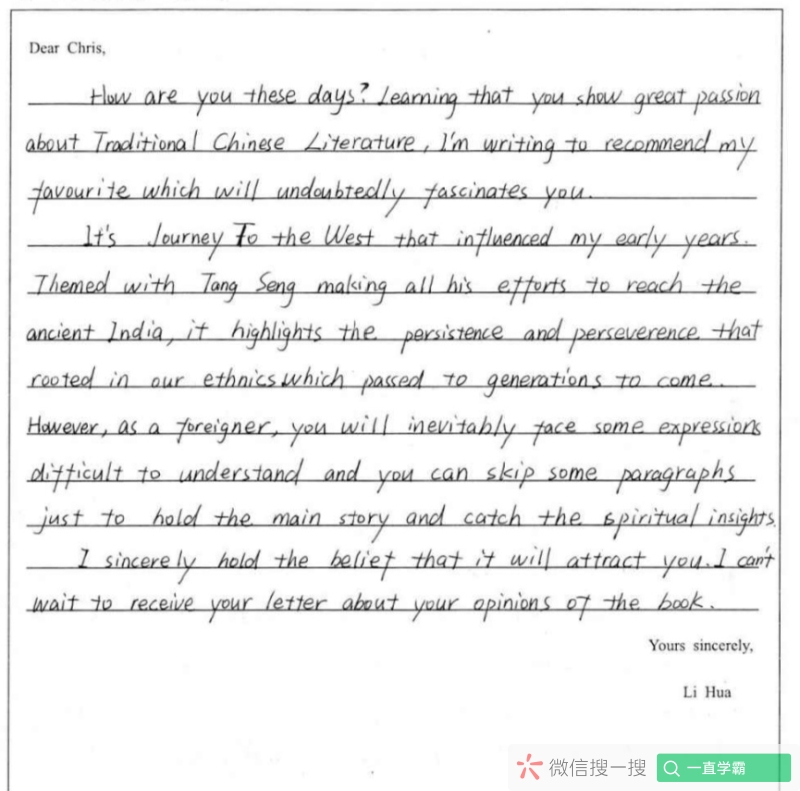 Dear Chris,
How are you these days? Learning that you show great passion
about Traditional Chinese Literature, I'm writing to recommend my
favourite which will undoubtedly fascinates you.
It's Journey To the West that influenced my early years.
Themed with Tang Seng making all his efforts to reach the
ancient India, it highlights the persistence and perseverence that
rooted in our ethnics which passed to generations to come.
However, as a foreigner, you will inevitably face some expressions
difficult to understand and you can skip some paragraphs
just to hold the main story and catch the spiritual insights.
I sincerely hold the belief that it will attract you. I can't
wait to receive your letter about your opinions of the book.
Yours sincerely,
Li Hua
微信搜一搜 一直学霸